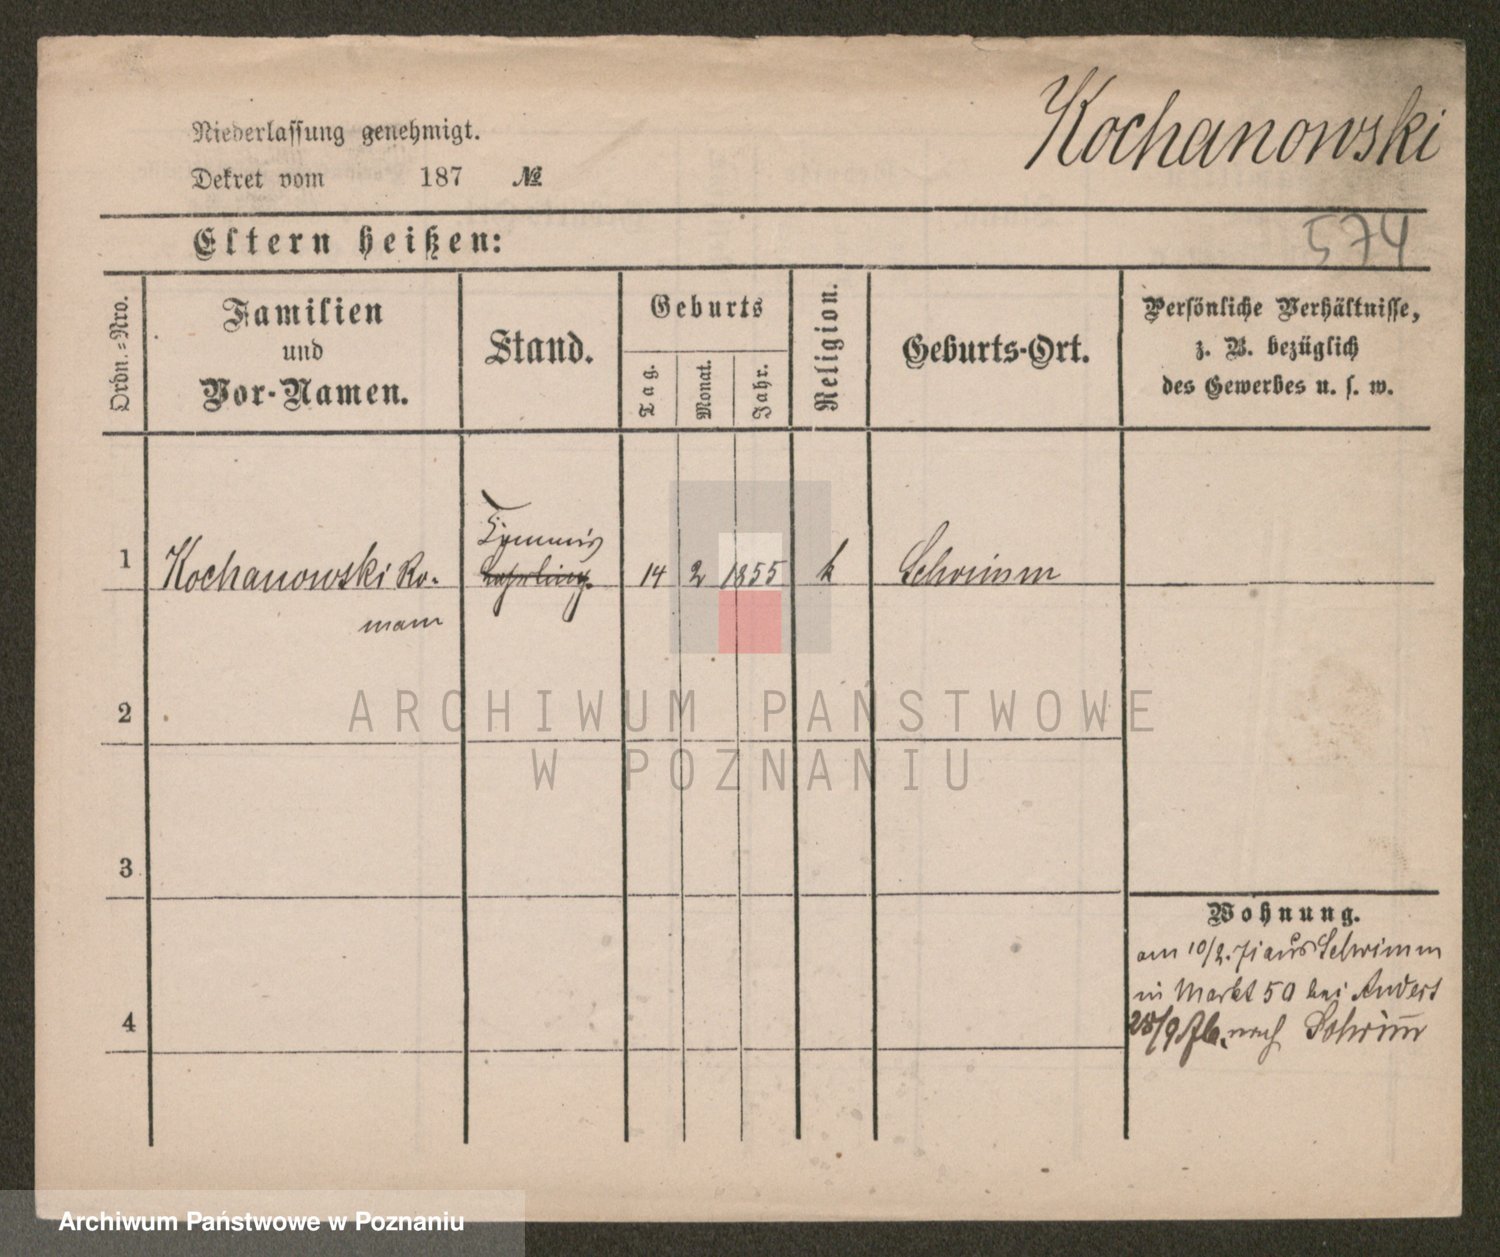 Kochanowski
Niederlassung genehmigt.
Dekret vom 187 №
574
Eltern heißen:
Ordn.-Nro.
Familien
und
Vor-Namen.
Stand.
Geburts
Tag.
Monat.
Jahr.
Religion.
Geburts-Ort.
Persönliche Verhältnisse,
z. B. bezüglich
des Gewerbes u. s. w.
1 Kochanowski Ro-
mann
14 2 1855 k Schrimm
2
3
4
Wohnung.
am 10/2. 71 aus Schrimm
in Markt 50 bei Andert
nach Schrim̅
ARCHIWUM PAŃSTWOWE
W POZNANIU
Archiwum Państwowe w Poznaniu